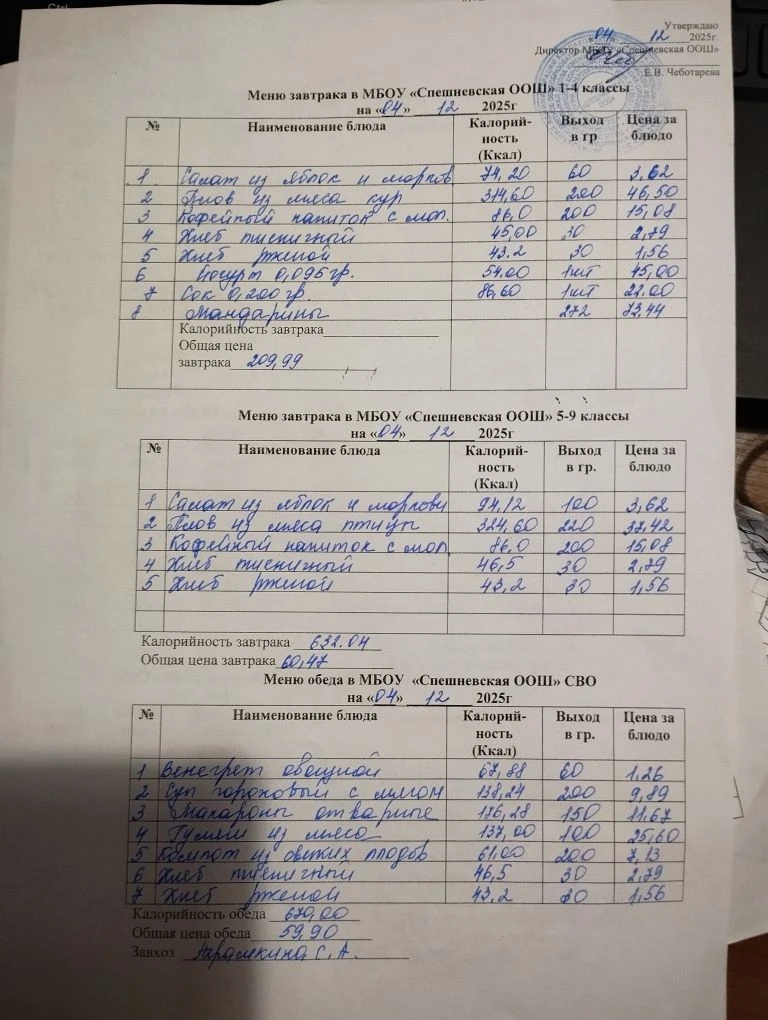 Утверждаю
«04» 12 2025г.
Директор МБОУ «Спешневская ООШ»
Е.В. Чеботарева
Меню завтрака в МБОУ «Спешневская ООШ» 1-4 классы
на «04» 12 2025г
№ Наименование блюда Калорий-ность (Ккал) Выход в гр Цена за блюдо
1 Салат из яблок и морков 74,20 60 3,62
2 Плов из мяса кур 314,60 200 46,50
3 Кофейный напиток с мол. 86,0 200 15,08
4 Хлеб пшеничный 45,00 30 2,79
5 Хлеб ржаной 43.2 30 1,56
6 Йогурт 0,095 гр. 54.00 1шт 45,00
7 Сок 0,200 гр. 86,60 1шт 22.00
8 Мандарины 272 73,44
Калорийность завтрака
Общая цена
завтрака 209,99
Меню завтрака в МБОУ «Спешневская ООШ» 5-9 классы
на «04» 12 2025г
№ Наименование блюда Калорий-ность (Ккал) Выход в гр. Цена за блюдо
1 Салат из яблок и моркови 94,12 100 3,62
2 Плов из мяса птицы 324,60 220 37,42
3 Кофейный напиток с мол. 86,0 200 15,08
4 Хлеб пшеничный 46,5 30 2,79
5 Хлеб ржаной 43,2 30 1,56
Калорийность завтрака 632.04
Общая цена завтрака 60,47
Меню обеда в МБОУ «Спешневская ООШ» СВО
на «04» 12 2025г
№ Наименование блюда Калорий-ность (Ккал) Выход в гр. Цена за блюдо
1 Венегрет овощной 67,88 60 1,26
2 Суп гороховый с мясом 138,24 200 9,89
3 Макароны отварные 176,28 150 11,67
4 Гуляш из мяса 137,00 100 25,60
5 Компот из свежих плодов 61,00 200 7,13
6 Хлеб пшеничный 46,5 30 2,79
7 Хлеб ржаной 43,2 30 1,56
Калорийность обеда 670,00
Общая цена обеда 59,90
Завхоз Парамкина С.А.